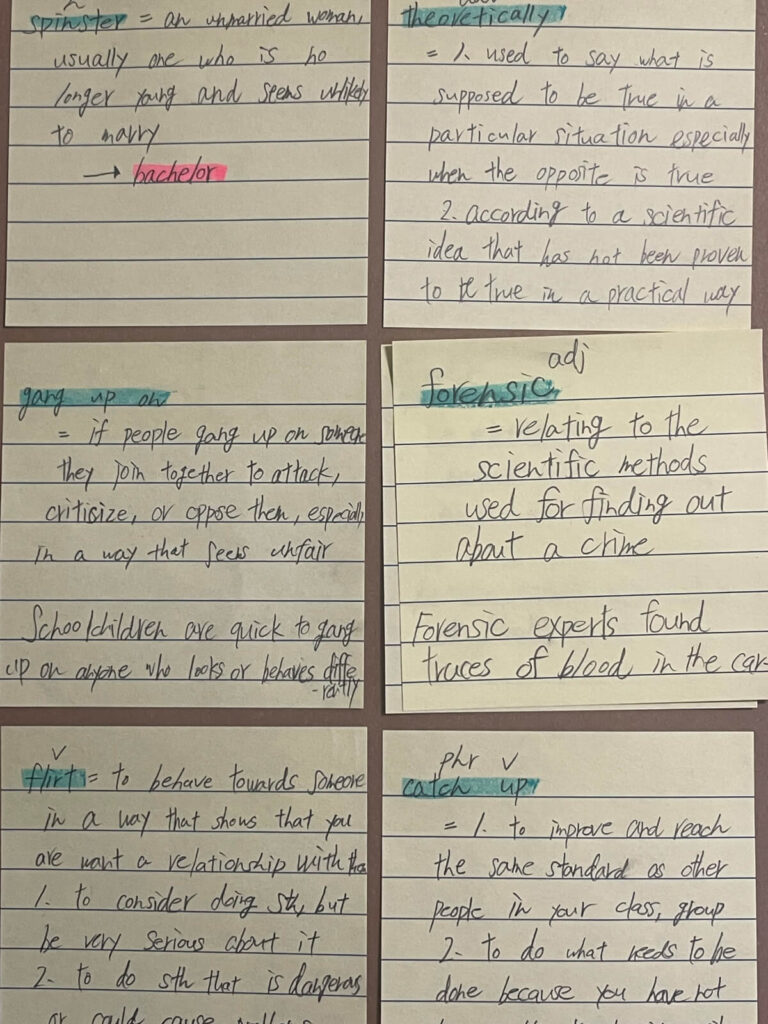 n
spinster = an unmarried woman,
usually one who is no
longer young and seems unlikely
to marry
→ bachelor
theoretically
= 1. used to say what is
supposed to be true in a
particular situation especially
when the opposite is true
2. according to a scientific
idea that has not been proven
to be true in a practical way
gang up on
= if people gang up on someone
they join together to attack,
criticize, or oppose them, especially
in a way that seems unfair
Schoolchildren are quick to gang
up on anyone who looks or behaves diffe
-rently
adj
forensic
= relating to the
scientific methods
used for finding out
about a crime
Forensic experts found
traces of blood in the car.
v
flirt = to behave towards someone
in a way that shows that you
are want a relationship with
1. to consider doing sth, but
be very serious about it
2. to do sth that is dangerous
or could cause
phr v
catch up
= 1. to improve and reach
the same standard as other
people in your class, group
2. to do what needs to be
done because you have not